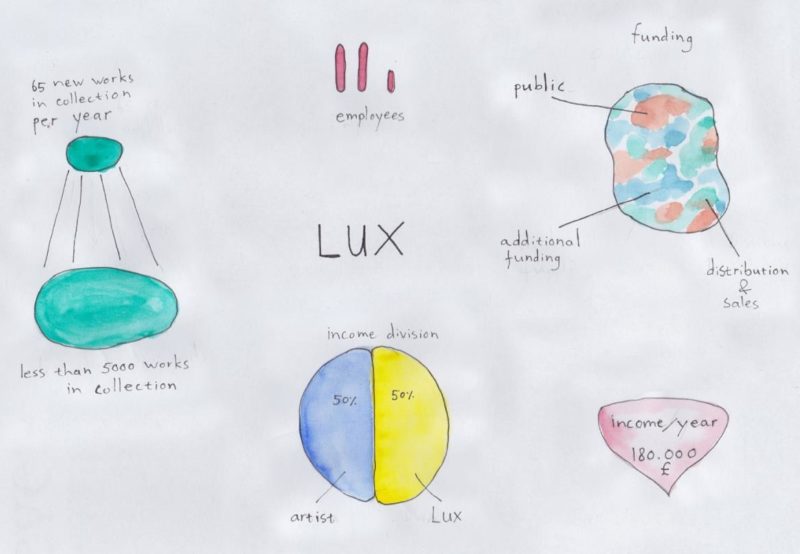 65 new works
in collection
per year
less than 5000 works
in collection
employees
LUX
income division
50%
50%
artist
Lux
funding
public
additional
funding
distribution
&
sales
income/year
180.000
£